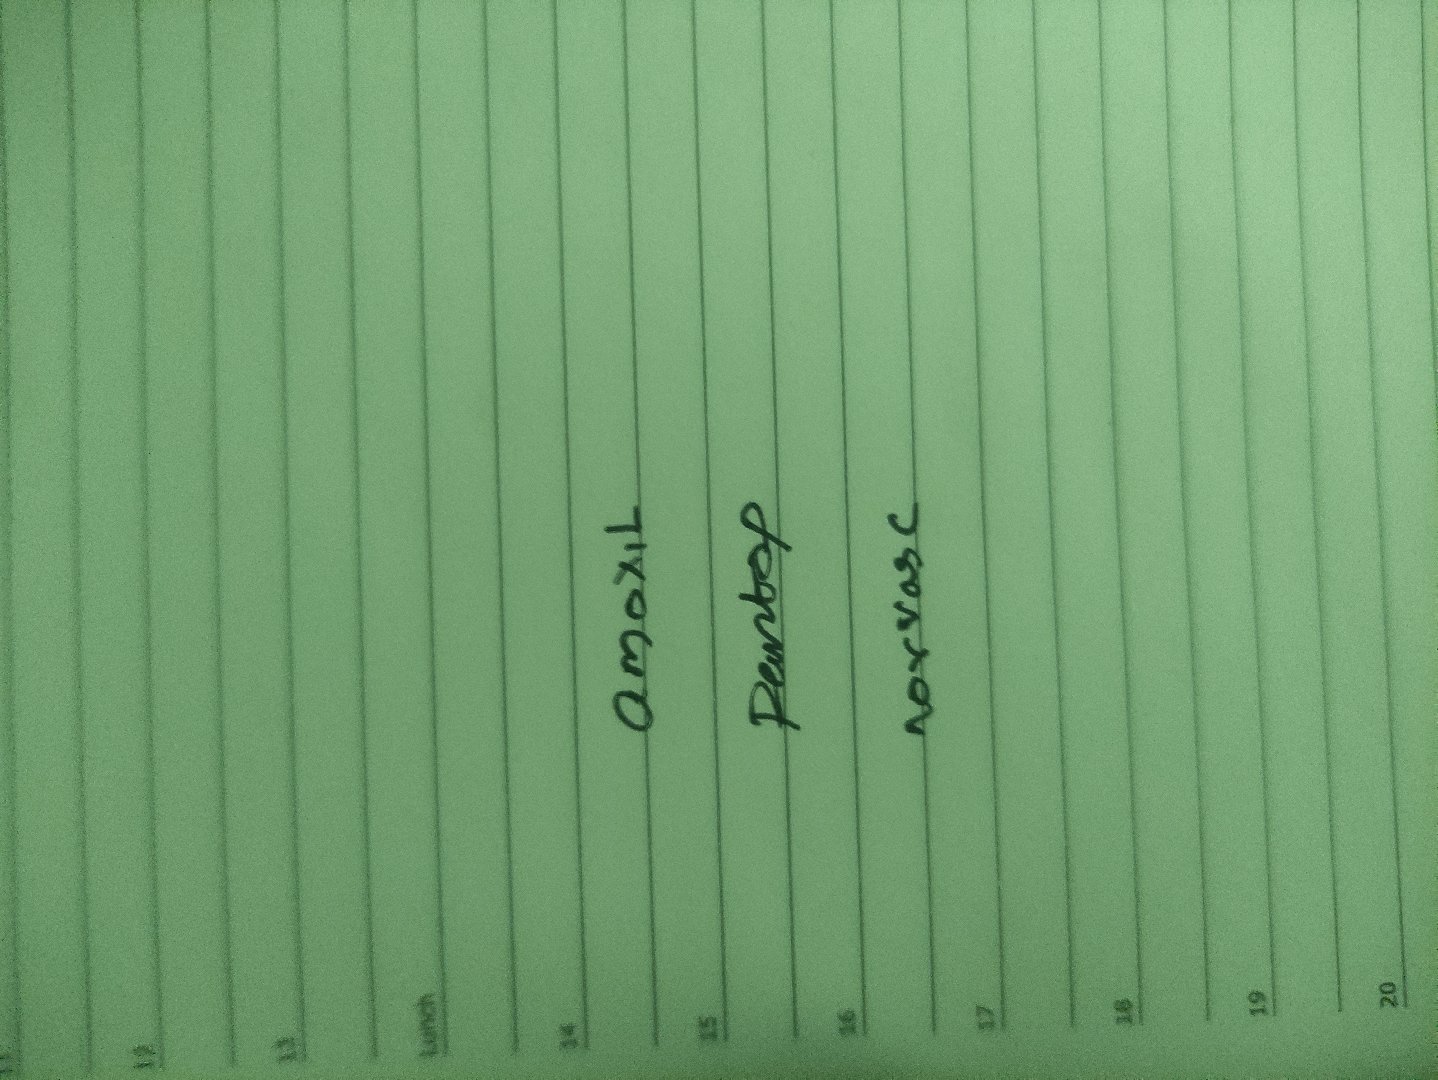 12
13
Lunch
14
amoxiL
15
Pantop
16
norvasc
17
18
19
20